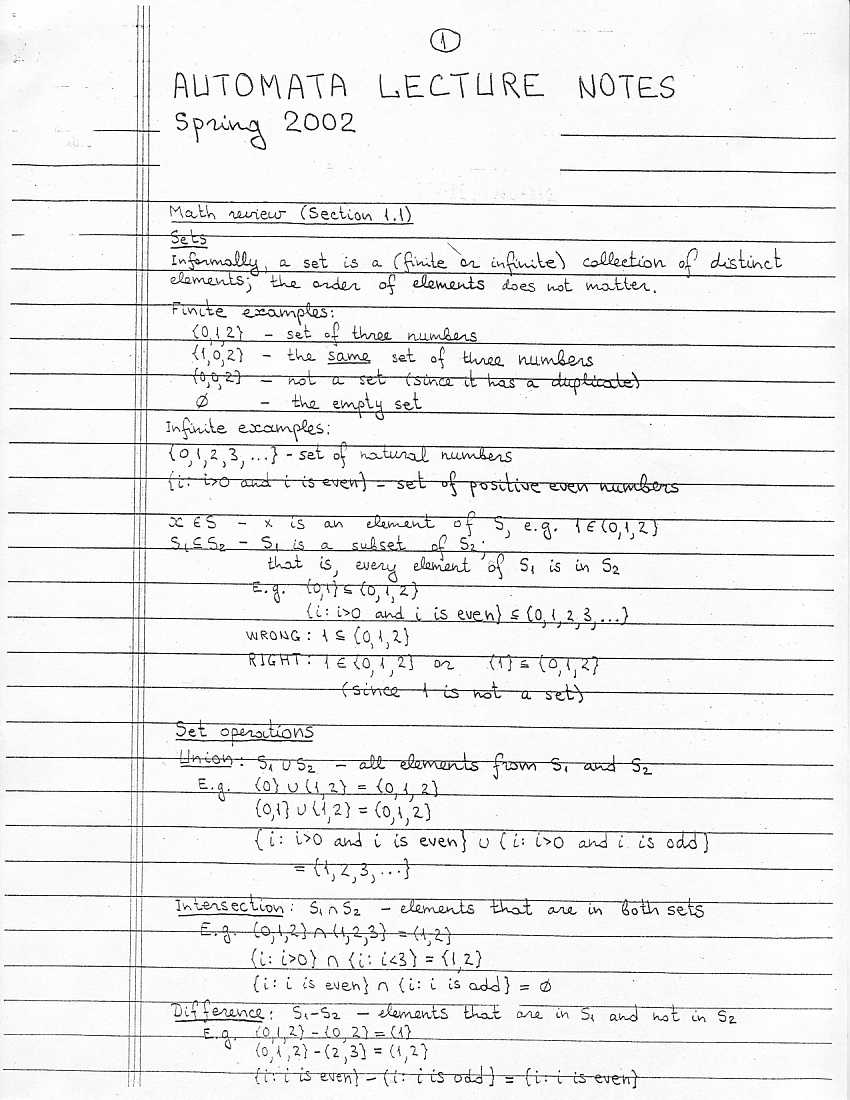 1
AUTOMATA LECTURE NOTES
Spring 2002
Math review (Section 1.1)
Sets
Informally, a set is a (finite or infinite) collection of distinct
elements; the order of elements does not matter.
Finite examples:
{0,1,2} - set of three numbers
{1,0,2} - the same set of three numbers
{0,0,2} - not a set (since it has a duplicate)
∅ - the empty set
Infinite examples:
{0,1,2,3,...} - set of natural numbers
{i: i>0 and i is even} - set of positive even numbers
x ∈ S - x is an element of S, e.g. 1 ∈ {0,1,2}
S₁ ⊆ S₂ - S₁ is a subset of S₂;
that is, every element of S₁ is in S₂
E.g. {0,1} ⊆ {0,1,2}
{i: i>0 and i is even} ⊆ {0,1,2,3,...}
WRONG: 1 ⊆ {0,1,2}
RIGHT: 1 ∈ {0,1,2} or {1} ⊆ {0,1,2}
(since 1 is not a set)
Set operations
Union: S₁ ∪ S₂ - all elements from S₁ and S₂
E.g. {0} ∪ {1,2} = {0,1,2}
{0,1} ∪ {1,2} = {0,1,2}
{i: i>0 and i is even} ∪ {i: i>0 and i is odd}
= {1,2,3,...}
Intersection: S₁ ∩ S₂ - elements that are in both sets
E.g. {0,1,2} ∩ {1,2,3} = {1,2}
{i: i>0} ∩ {i: i<3} = {1,2}
{i: i is even} ∩ {i: i is odd} = ∅
Difference: S₁-S₂ - elements that are in S₁ and not in S₂
E.g. {0,1,2} - {0,2} = {1}
{0,1,2} - {2,3} = {1,2}
{i: i is even} - {i: i is odd} = {i: i is even}